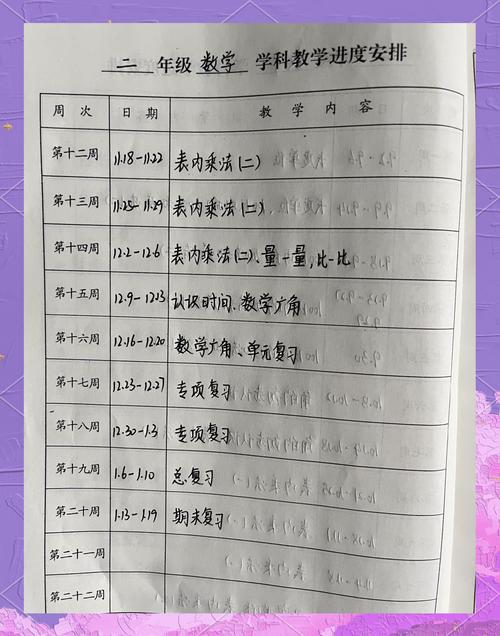 二 年级 数学 学科教学进度安排
周次 日期 教学内容
第十二周 11.18-11.22 表内乘法(二)
第十三周 11.25-11.29 表内乘法(二).
第十四周 12.2-12.6 表内乘法(二).量一量,比一比
第十五周 12.9-12.13 认识时间、数学广角
第十六周 12.16-12.20 数学广角、单元复习
第十七周 12.23-12.27 专项复习
第十八周 12.30-1.3 专项复习
第十九周 1.6-1.10 总复习
第二十周 1.13-1.19 期末复习
第二十一周
第二十二周